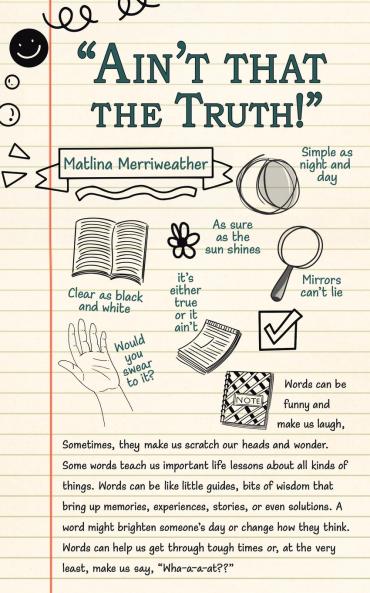 “Ain’t that
the Truth!”
Matlina Merriweather
Simple as
night and
day
As sure
as the
sun shines
Clear as black
and white
it’s
either
true
or it
ain’t
Mirrors
can’t lie
Would
you
swear
to it?
NOTE
Words can be
funny and
make us laugh,
Sometimes, they make us scratch our heads and wonder.
Some words teach us important life lessons about all kinds of
things. Words can be like little guides, bits of wisdom that
bring up memories, experiences, stories, or even solutions. A
word might brighten someone’s day or change how they think.
Words can help us get through tough times or, at the very
least, make us say, “Wha-a-a-at??”